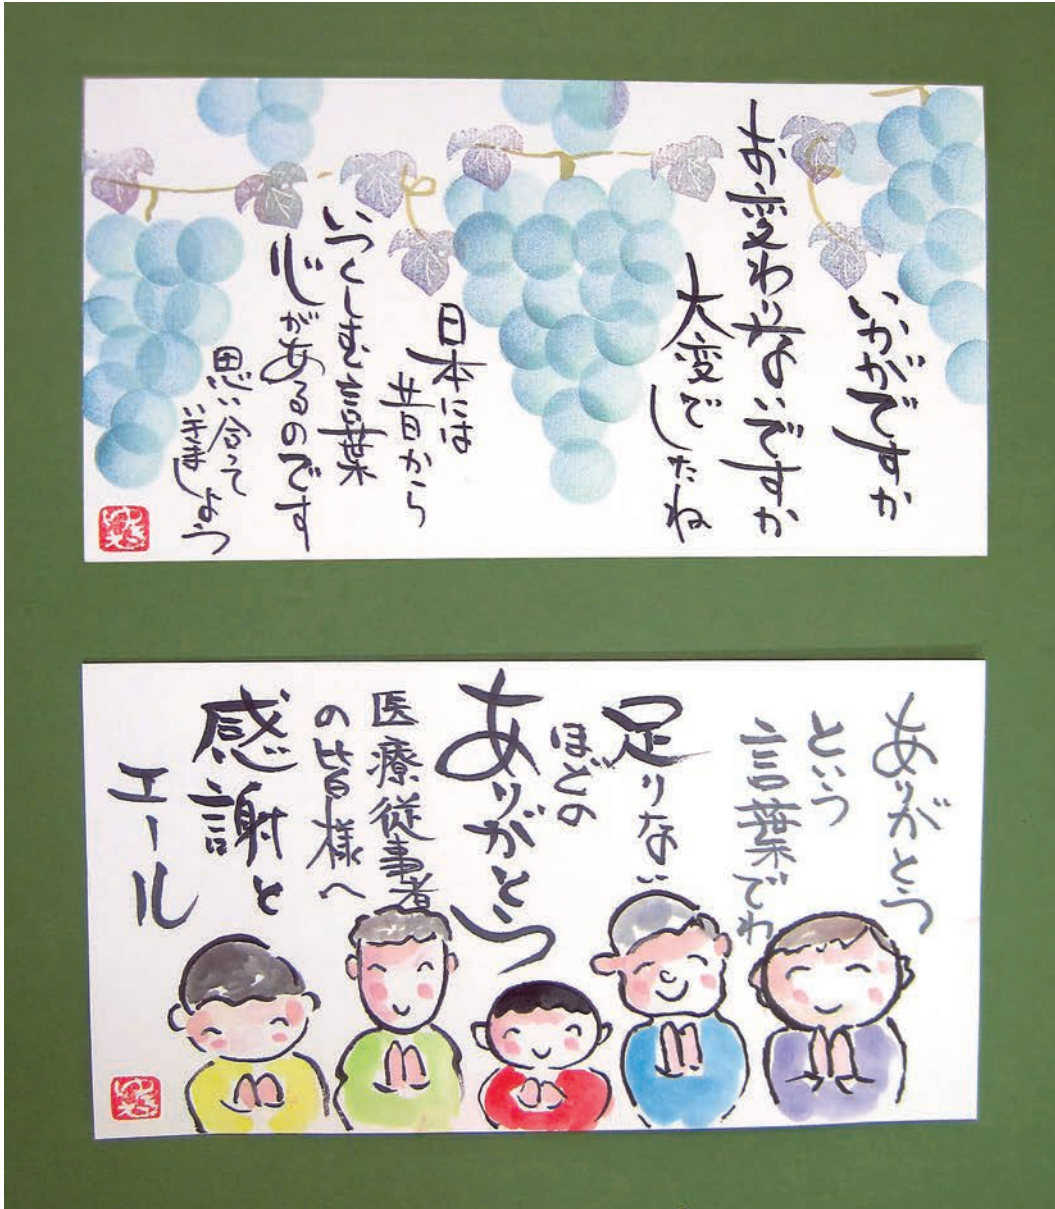 いかがですか
お変わりないですか
大変でしたね
日本には
昔から
いつくしむ言葉
心があるのです
思い合って
いきましょう
ありがとう
という
言葉でわ
足りない
ほどの
ありがとう
医療従事者
の皆様へ
感謝と
エール